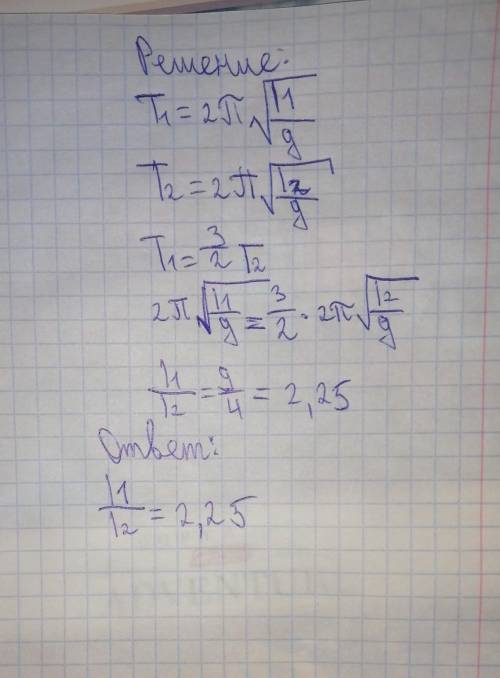 Решение:
T1 = 2π√(l1/g)
T2 = 2π√(l2/g)
T1 = 3/2 T2
2π√(l1/g) = 3/2 · 2π√(l2/g)
l1/l2 = 9/4 = 2,25
Ответ:
l1/l2 = 2,25